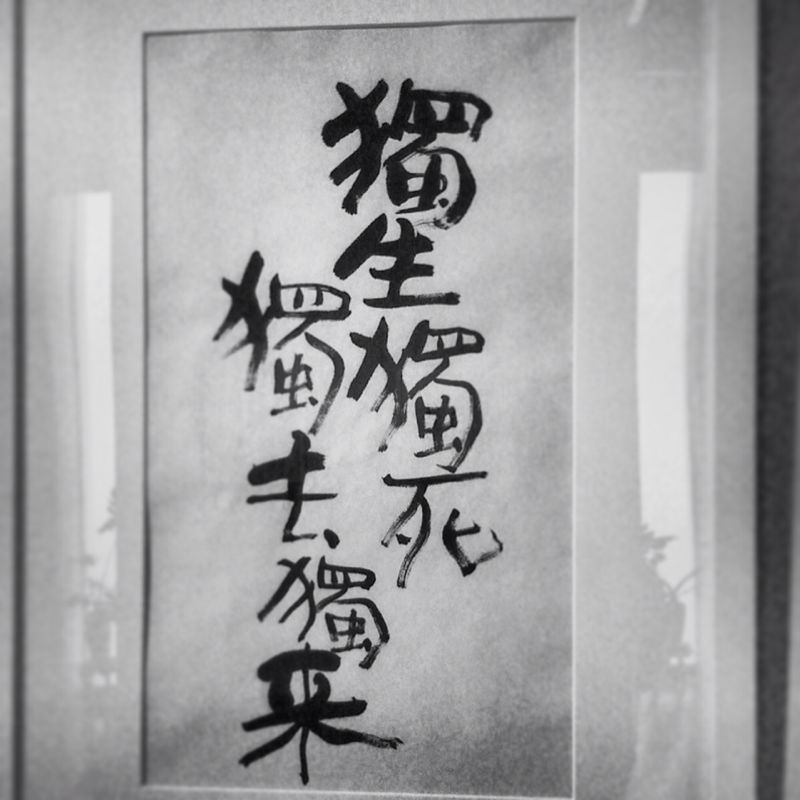 獨生獨死
獨去獨来